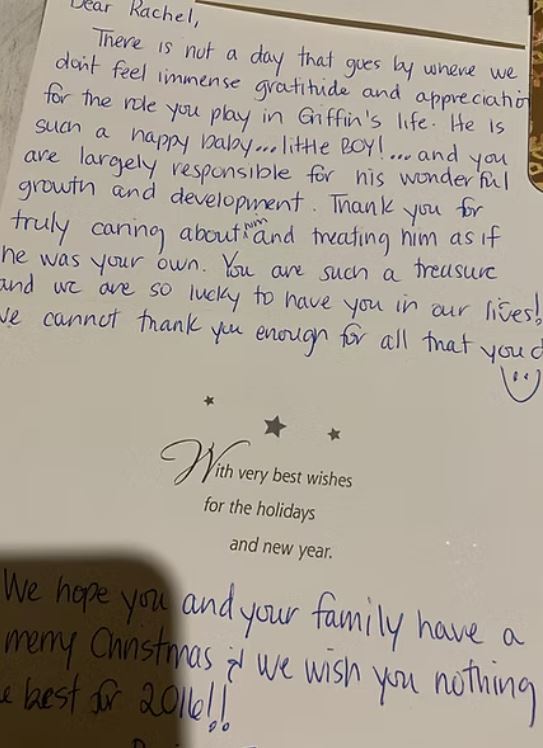 Dear Rachel,
There is not a day that goes by where we
don't feel immense gratitude and appreciation
for the role you play in Griffin's life. He is
such a happy baby... little BOY!... and you
are largely responsible for his wonderful
growth and development. Thank you for
truly caring about him and treating him as if
he was your own. You are such a treasure
and we are so lucky to have you in our lives!
We cannot thank you enough for all that you d
With very best wishes
for the holidays
and new year.
We hope you and your family have a
merry Christmas & we wish you nothing
best for 2016!!